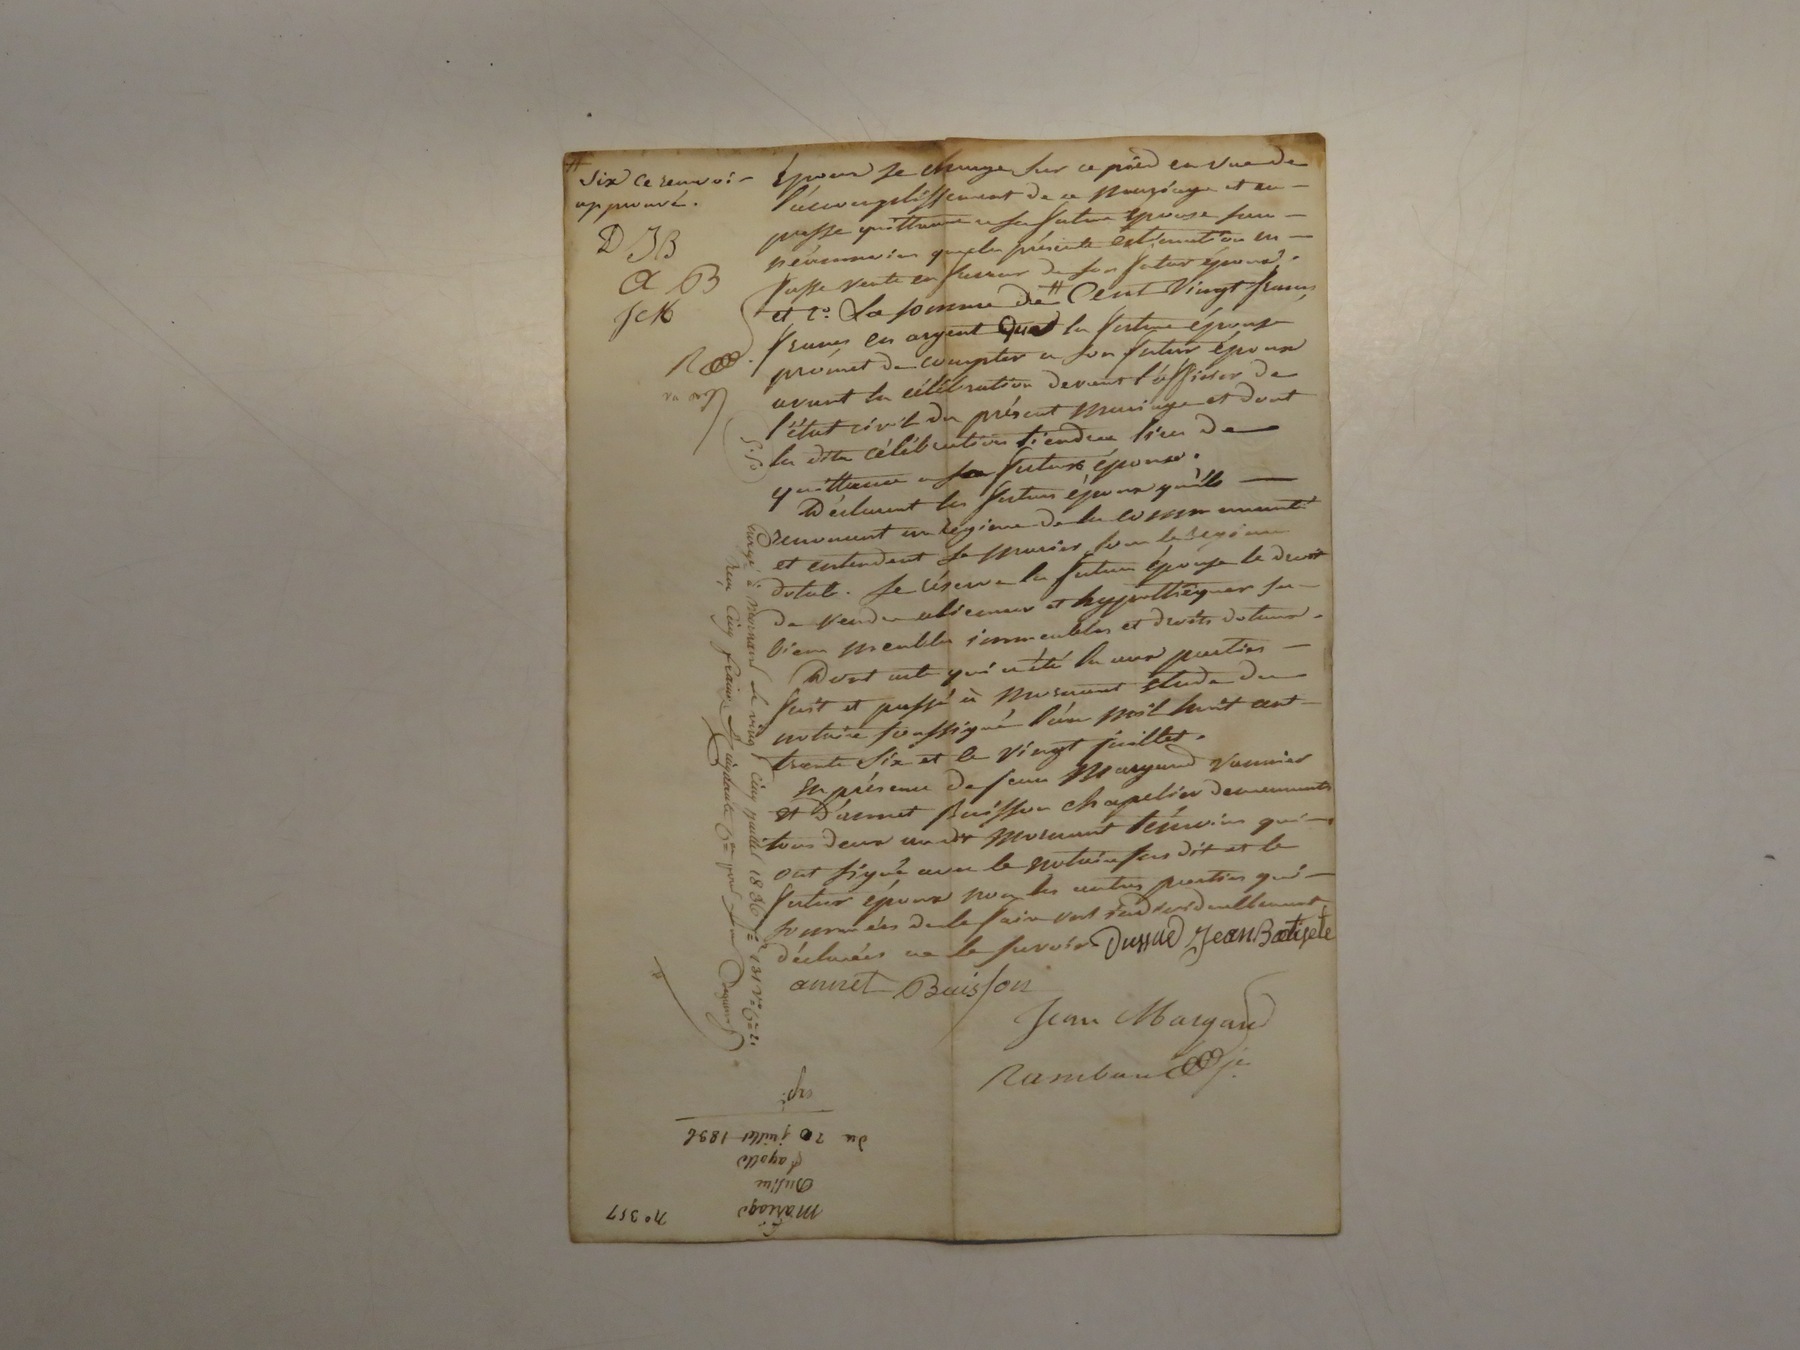 # six ce renvoi
approuvé.
D JB
a B
JcM
R
époux se charge sur ce pied en vue de
l'accomplissement de ce mariage et en
passe quittance a sa future épouse sans
néanmoins que la présente estimation en
fasse vente en faveur de son futur époux.
et 2° La somme de # Cent vingt francs
francs en argent que la future épouse
promet de compter a son futur époux
avant la célébration devant l'officier de
l'état civil du présent mariage et dont
la dite célébration tiendra lieu de
quittance a sa future épouse.
Déclarent les futurs époux qu'ils
renoncent au régime de la communauté
et entendent se marier sous le régime
dotal. se réserve la future épouse le droit
de vendre aliener et hypothéquer ses
biens meubles immeubles et droits dotaux.
Dont acte qui a été lu aux parties
fait et passé à Mornant étude du
notaire soussigné l'an mil huit cent
trente six et le vingt juillet.
En présence de Jean Margand vannier
et d'annet Buisson chapelier demeurants
tous deux audit Mornant témoins qui
ont signé avec le notaire sus dit et le
futur époux non les autres parties qui
sommées de le faire ont individuellement
déclarées ne le savoir Dussud Jean Batiste
annet Buisson
Jean Margand
Rambaud je
Enregé à Mornant le vingt cinq juillet 1836 f° 131 V° C 2
Reçu cinq francs cinquante c. pour
N° 357
Mariage
Dussud
Fayolle
du 20 juillet 1836
expé